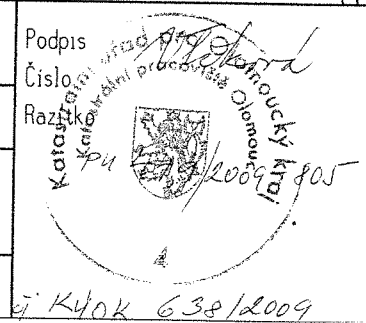 Podpis
Číslo
Razítko
Katastrální úřad pro Olomoucký kraj
Katastrální pracoviště Olomouc
PÚ /2009-805
4
638/2009